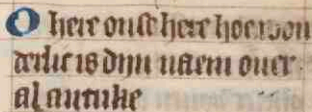 O here onse here hoe won
derlic is dijn naem ouer
al artrike